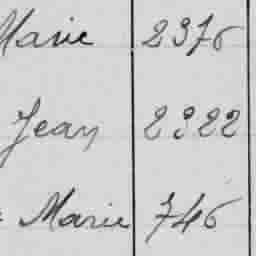 Marie 2376
Jean 2322
Marie 746